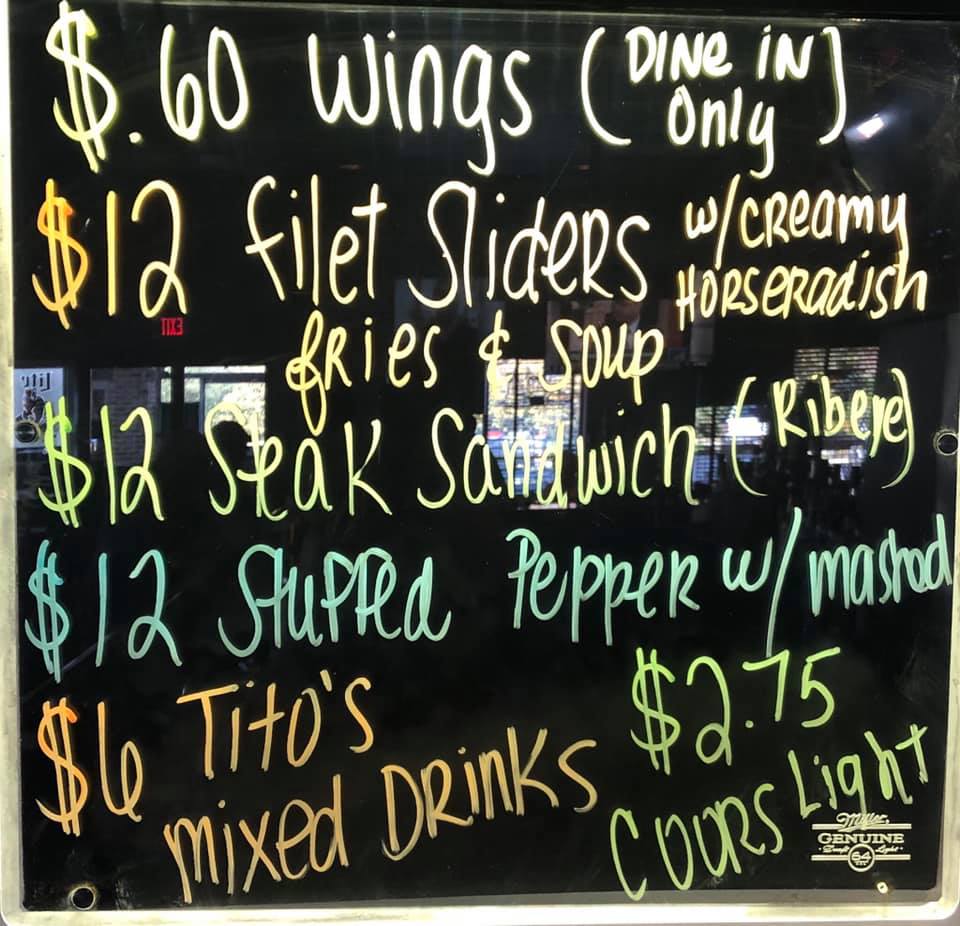 $.60 Wings (DINE IN
Only)
$12 filet Sliders w/CREAMY
HORSERADISH
fRIES & SOUP
EXIT
Lite
$12 Steak Sandwich (Ribeye)
$12 Stuffed Pepper w/mashed
$6 Tito's
mixed DRinks
$2.75
COORS Light
Miller
GENUINE
Draft Light
64